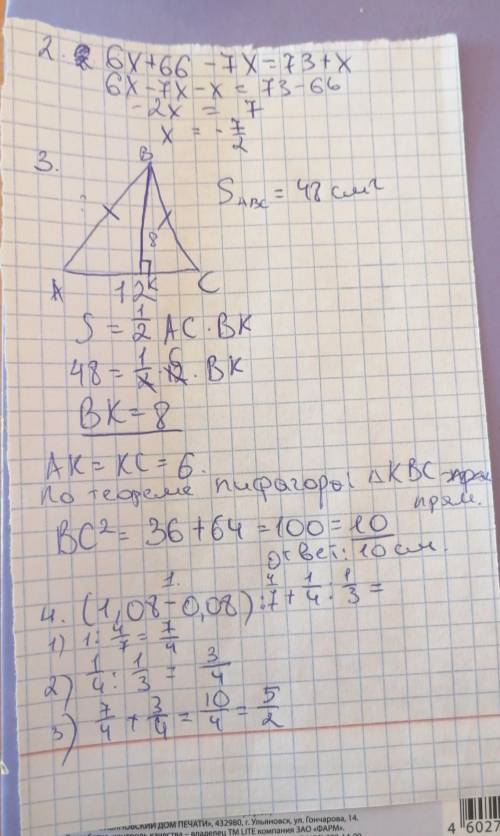 2. 6x+66-7x=73+x
6x-7x-x=73-66
-2x = 7
x = -7/2
3.
B
S ABC = 48 см²
?
8
A 12 K C
S = 1/2 AC · BK
48 = 1/2 · 12 · BK
6
BK = 8
AK = KC = 6.
По теореме пифагоры ΔKBC - прям.
BC² = 36+64 = 100 = 10
Ответ: 10 см.
1.
4. (1,08-0,08) : 4/7 + 1/4 : 1/3 =
1) 1: 4/7 = 7/4
2) 1/4 : 1/3 = 3/4
3) 7/4 + 3/4 = 10/4 = 5/2
ДОМ ПЕЧАТИ», 432980, г. Ульяновск, ул. Гончарова, 14.
качества – владелец ТМ LITE компания ЗАО «ФАРМ».